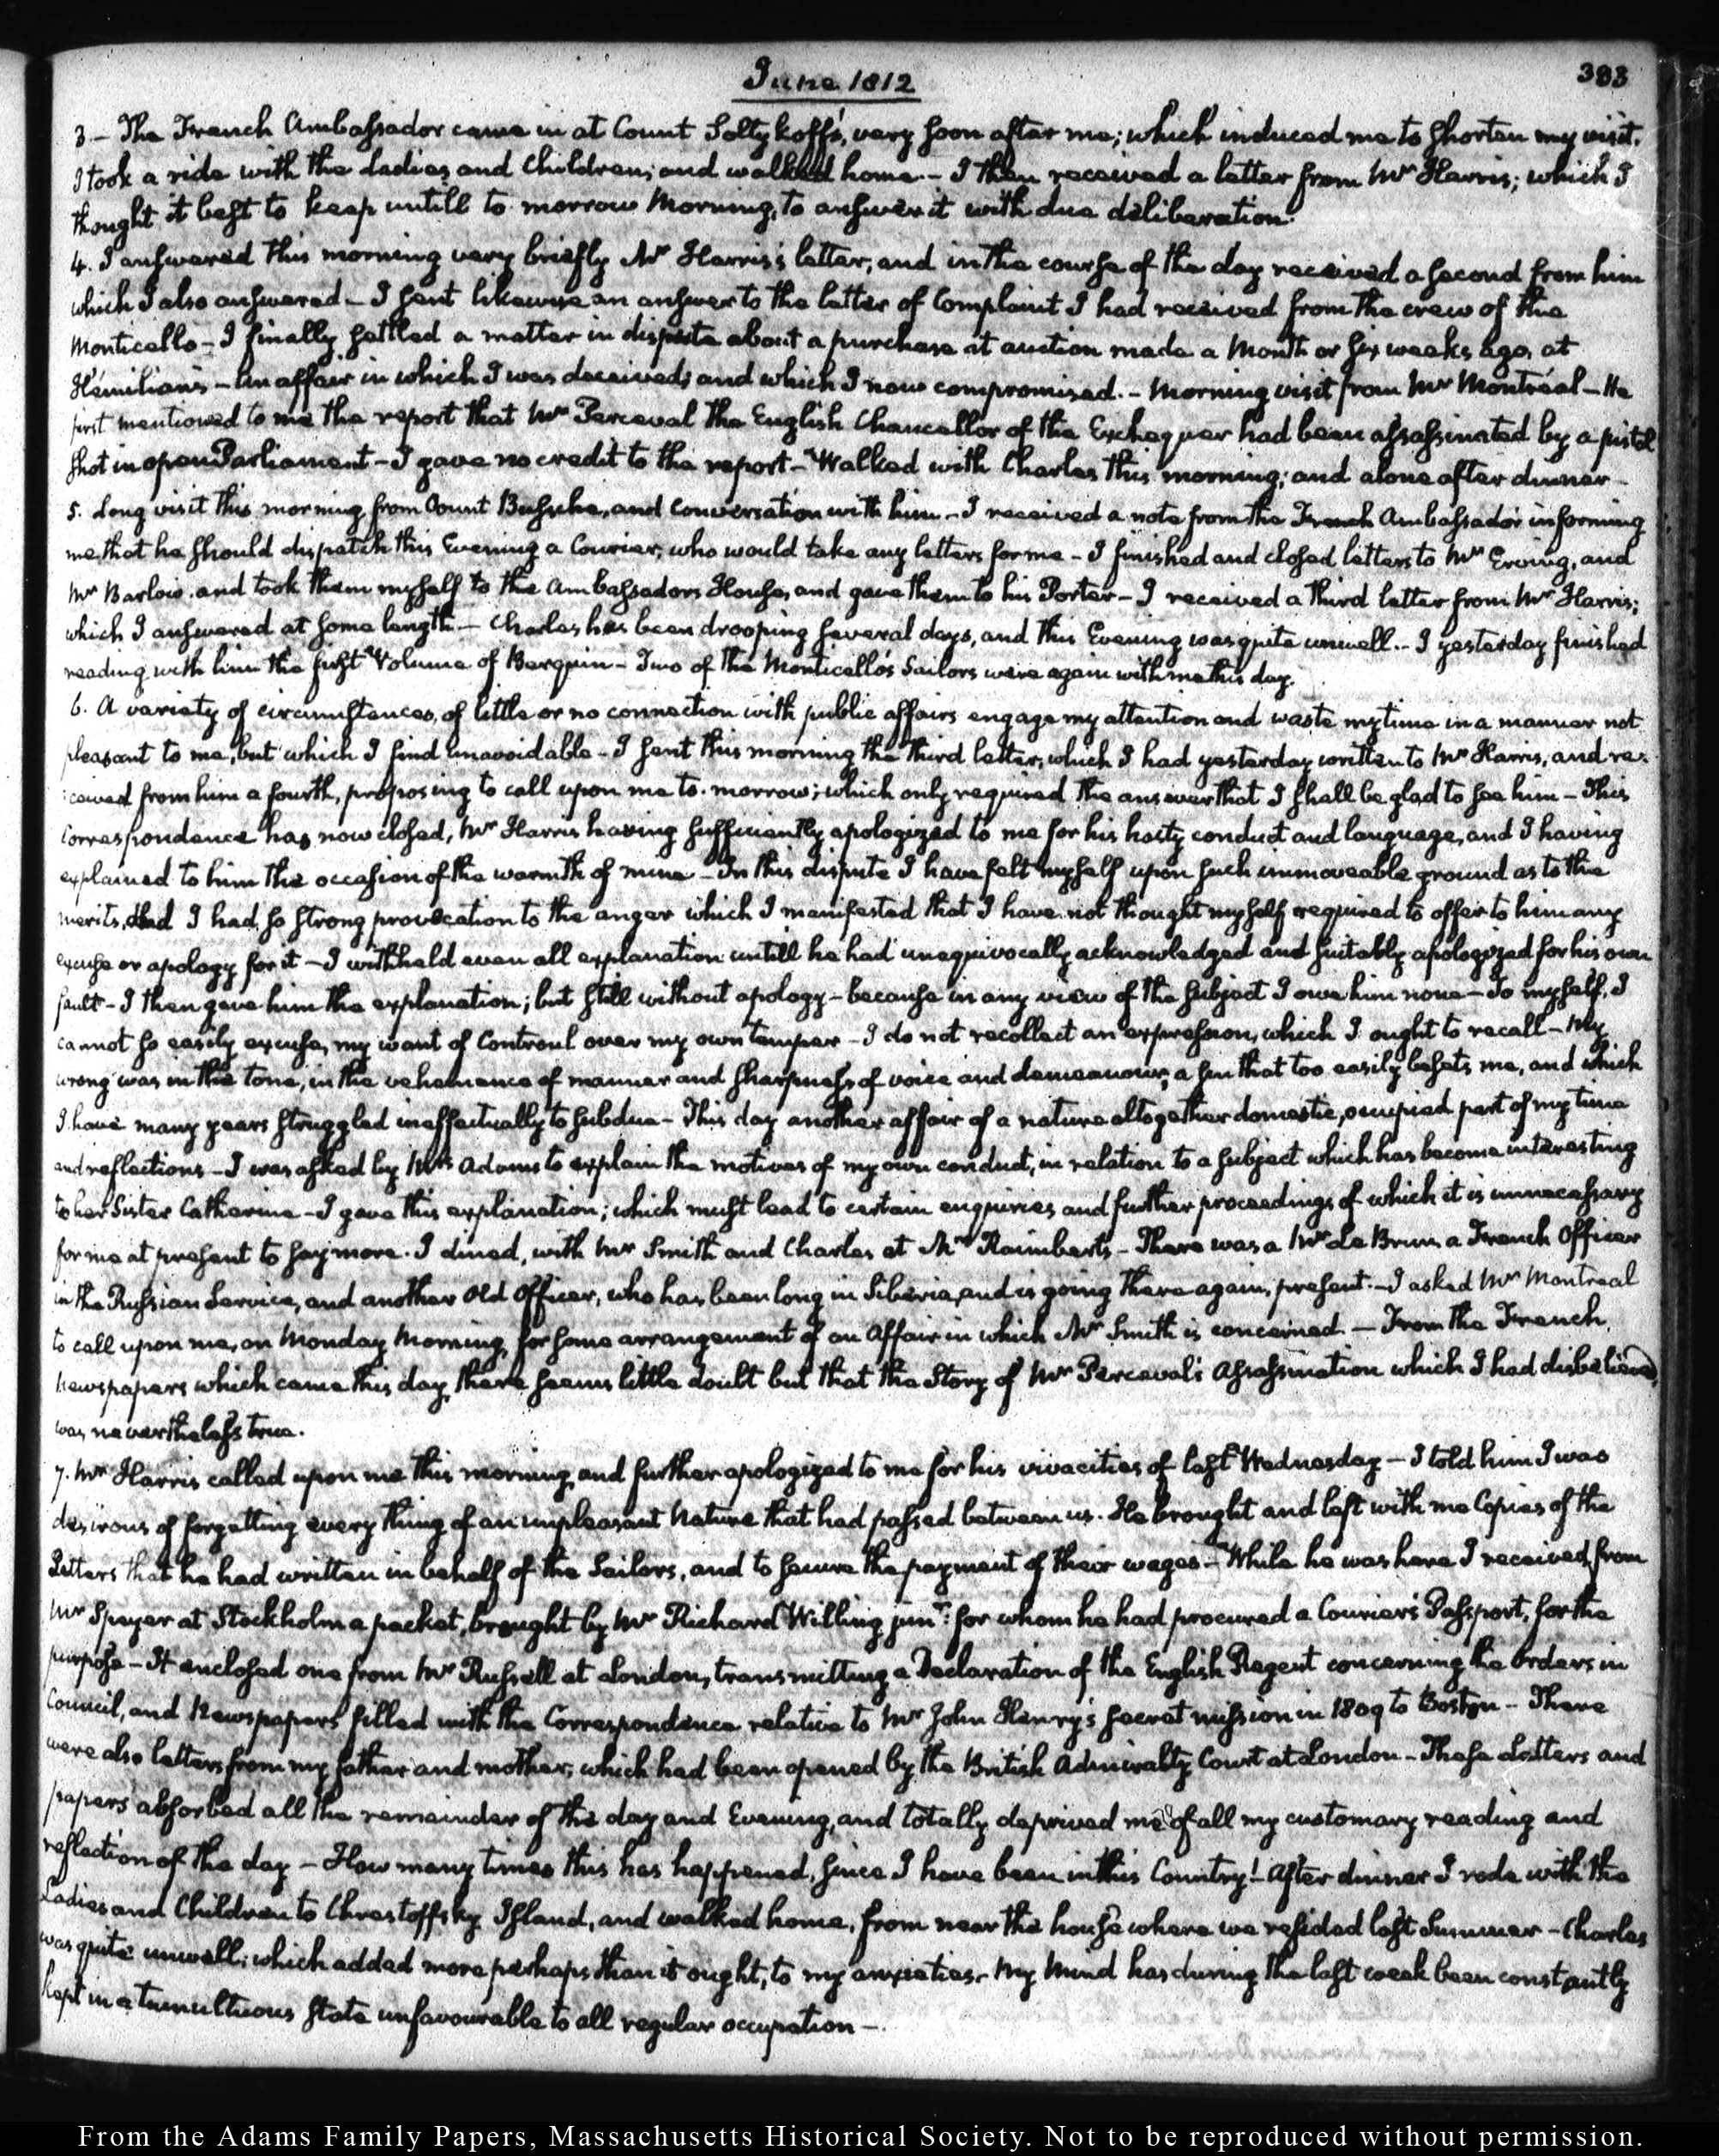 June 1812
383
3 — The French Ambassador came in at Count Soltykoff's, very soon after me; which induced me to shorten my visit.
I took a ride with the Ladies and Children; and walked home — I then received a letter from Mr Harris; which I
thought it best to keep untill to-morrow Morning, to answer it with due deliberation.
4. I answered this morning very briefly Mr Harris's letter, and in the course of the day received a second from him
which I also answered — I sent likewise an answer to the letter of Complaint I had received from the crew of the
Monticello — I finally settled a matter in dispute about a purchase at auction made a Month or six weeks ago, at
Hämilian's — An affair in which I was deceived; and which I now compromised. — Morning visit from Mr Montréal — He
first mentioned to me the report that Mr Perceval the English Chancellor of the Exchequer had been assassinated by a pistol
shot in open Parliament — I gave no credit to the report — Walked with Charles this morning; and alone after dinner —
5. Long visit this morning from Count Bussche, and conversation with him — I received a note from the French Ambassador informing
me that he should dispatch this Evening a Courier, who would take any letters for me — I finished and closed letters to Mr Erving, and
Mr Barlow, and took them myself to the Ambassadors House, and gave them to his Porter — I received a third letter from Mr Harris;
which I answered at some length — Charles has been drooping several days, and this Evening was quite unwell. — I yesterday finished
reading with him the first Volume of Berquin — Two of the Monticello's Sailors were again with me this day.
6. A variety of circumstances, of little or no connection with public affairs engage my attention and waste my time in a manner not
pleasant to me, but which I find unavoidable — I sent this morning the third letter, which I had yesterday written to Mr Harris, and re-
:ceived from him a fourth, proposing to call upon me to-morrow; which only required the answer that I shall be glad to see him — This
Correspondence has now closed, Mr Harris having sufficiently apologized to me for his hasty conduct and language, and I having
explained to him the occasion of the warmth of mine — In this dispute I have felt myself upon such immoveable ground as to the
merits, and I had so strong provocation to the anger which I manifested that I have not thought myself required to offer to him any
excuse or apology for it — I withheld even all explanation untill he had unequivocally acknowledged and suitably apologized for his own
fault — I then gave him the explanation; but still without apology — because in any view of the subject I owe him none — To myself, I
cannot so easily excuse, my want of Controul over my own temper — I do not recollect an expression, which I ought to recall — My
wrong was in the tone, in the vehemence of manner and sharpness of voice and demeanour; a sin that too easily besets me, and which
I have many years struggled ineffectually to subdue — This day another affair of a nature altogether domestic, occupied part of my time
and reflections — I was asked by Mrs Adams to explain the motives of my own conduct, in relation to a subject which has become interesting
to her Sister Catherine — I gave this explanation; which must lead to certain enquiries and further proceedings of which it is unnecessary
for me at present to say more. I dined, with Mr Smith and Charles at Mr Raimbert's — There was a Mr Le Brun a French Officer
in the Russian Service, and another Old Officer, who has been long in Siberia, and is going there again, present. — I asked Mr Montreal
to call upon me, on Monday Morning, for some arrangement of an Affair in which Mr Smith is concerned — From the French
Newspapers which came this day, there seems little doubt but that the Story of Mr Perceval's Assassination which I had disbelieved,
was nevertheless true.
7. Mr Harris called upon me this morning, and further apologized to me for his vivacities of last Wednesday — I told him I was
desirous of forgetting every thing of an unpleasant Nature that had passed between us. He brought and left with me Copies of the
Letters that he had written in behalf of the Sailors, and to secure the payment of their wages — While he was here I received, from
Mr Speyer at Stockholm a packet, brought by Mr Richard Willing junr: for whom he had procured a Courier's Passport, for the
purpose — It enclosed one from Mr Russell at London, transmitting a Declaration of the English Regent concerning the Orders in
Council, and Newspapers filled with the Correspondence relative to Mr John Henry's secret mission in 1809 to Boston — There
were also letters from my father and mother, which had been opened by the British Admiralty Court at London — These Letters and
papers absorbed all the remainder of the day and Evening, and totally deprived me of all my customary reading and
reflection of the day — How many times this has happened, since I have been in this Country! After dinner I rode with the
Ladies and Children to Chrestoffsky Island, and walked home, from near the house where we resided last Summer — Charles
was quite unwell; which added more perhaps than it ought, to my anxieties — My Mind has during the last week been constantly
kept in a tumultuous state unfavourable to all regular occupation —
From the Adams Family Papers, Massachusetts Historical Society. Not to be reproduced without permission.